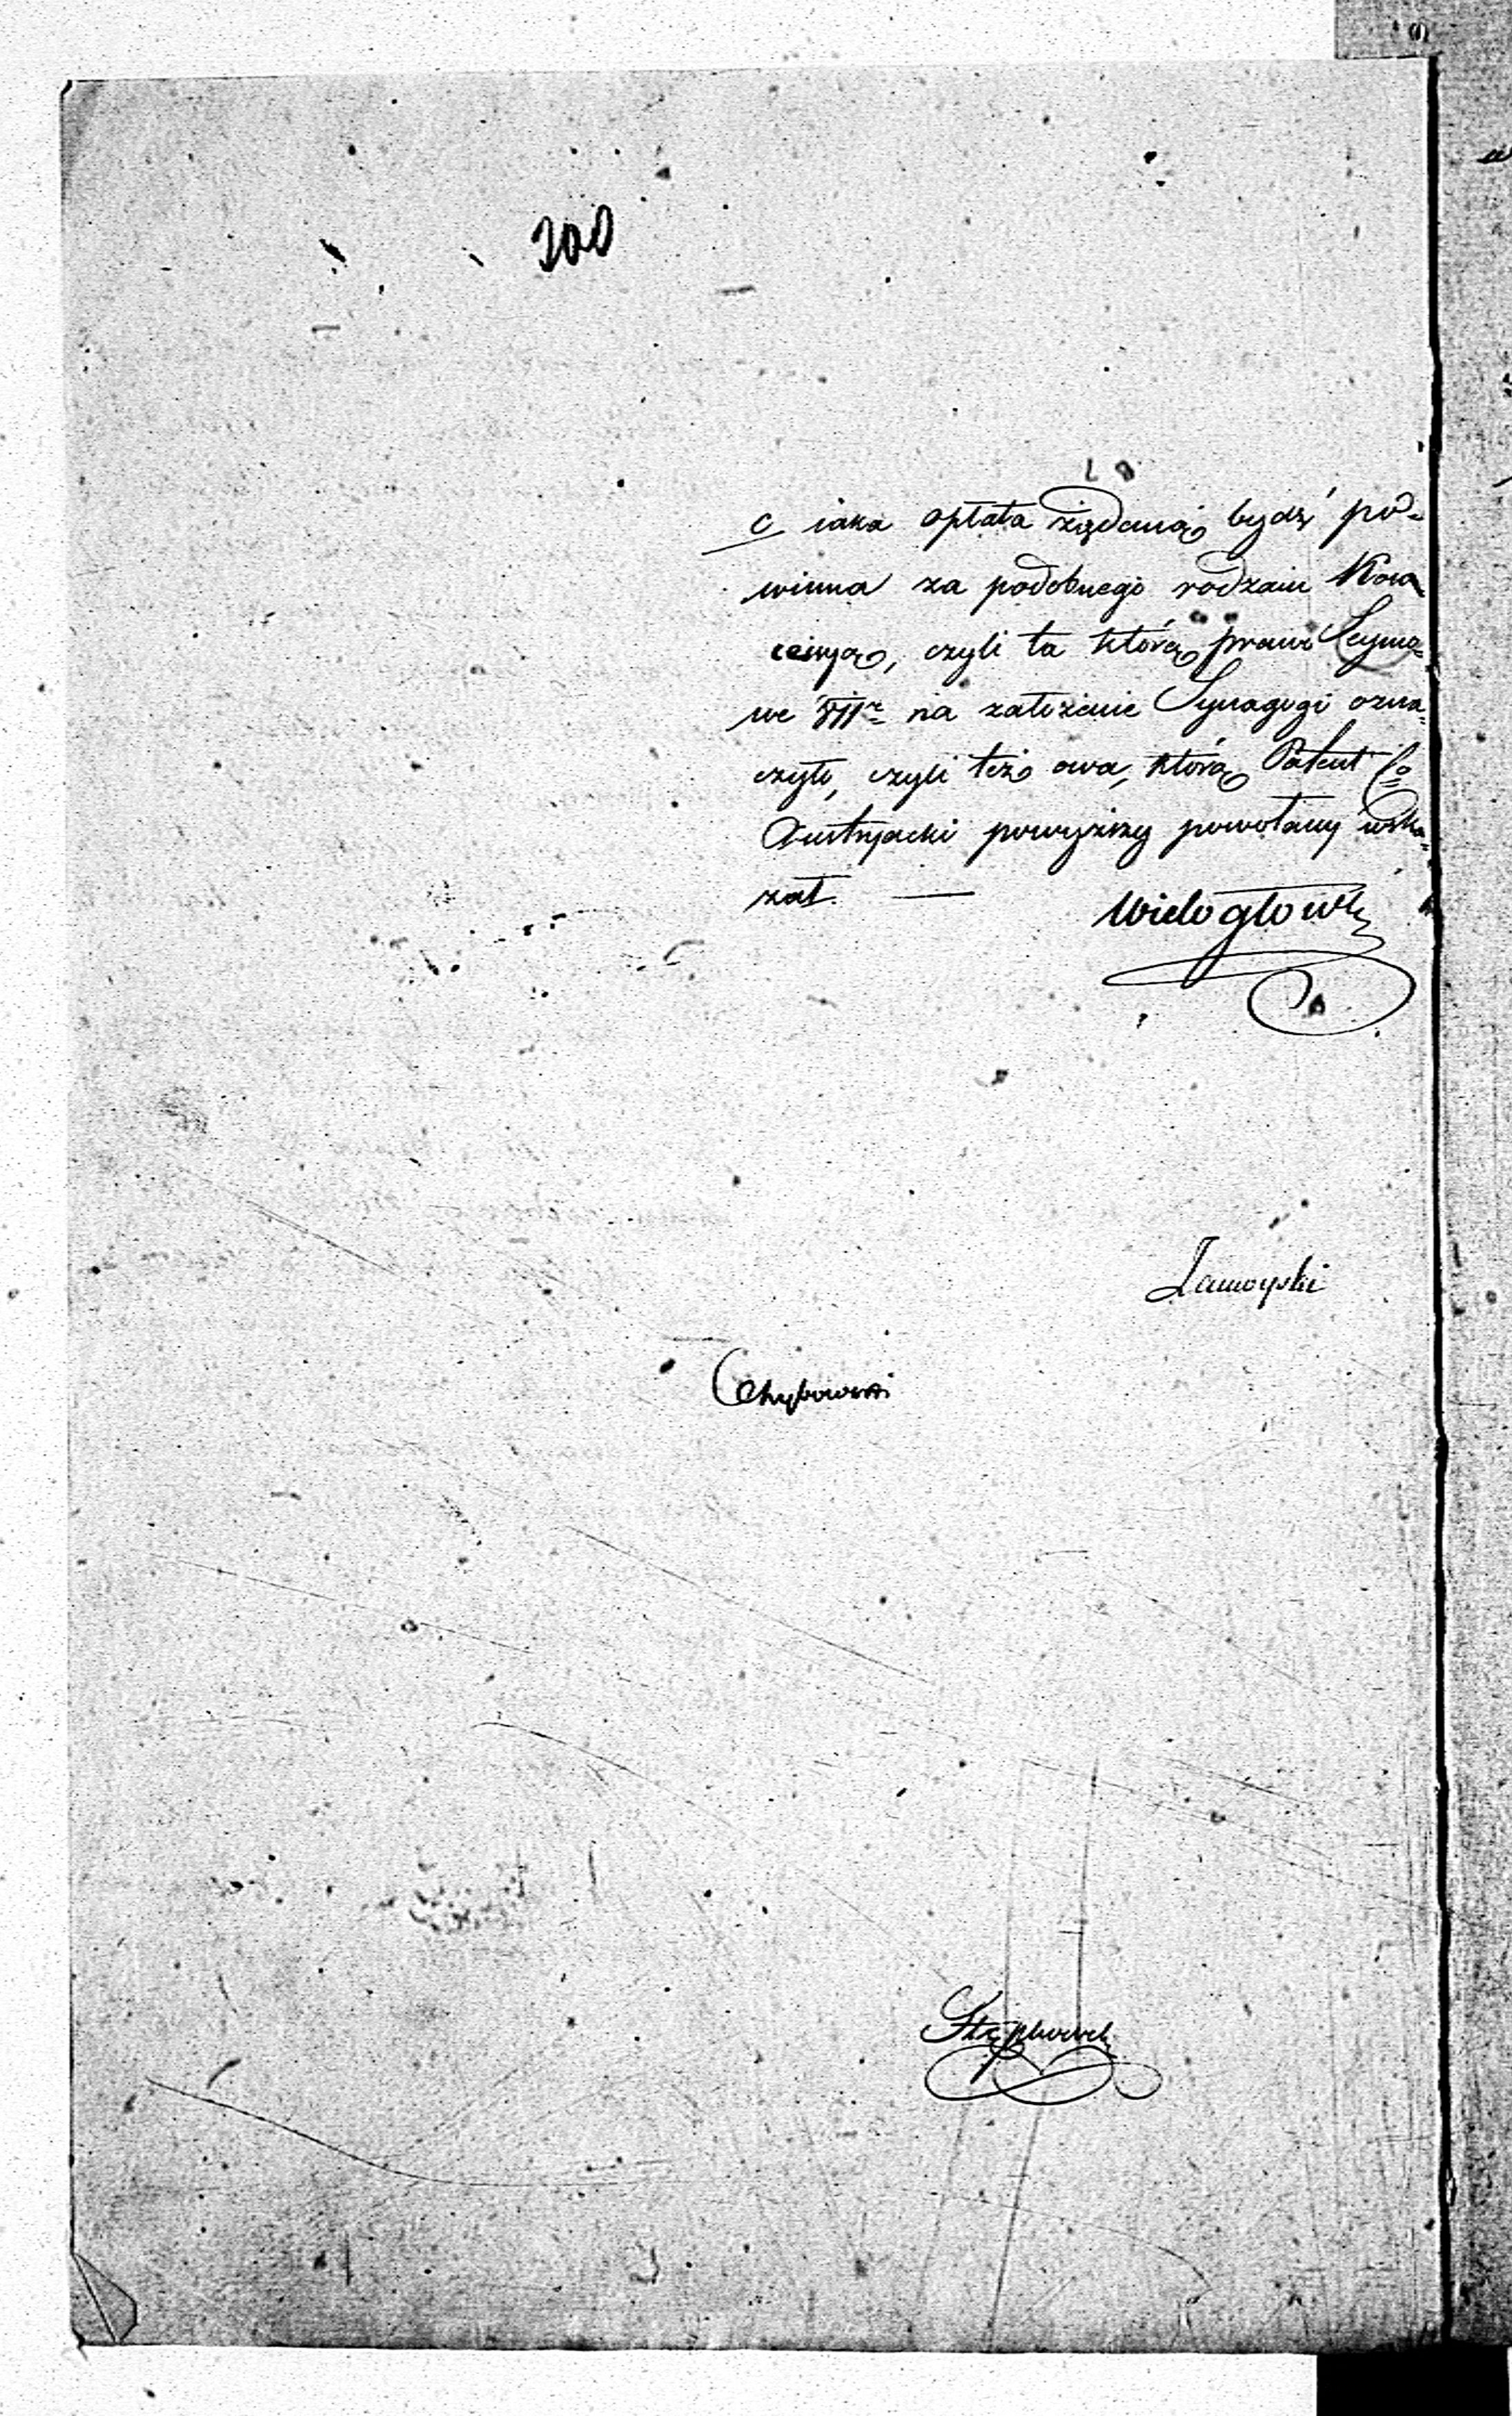 200
c iaka opłata żądaną bydź po-
winna za podobnego rodzaiu
czyli ta którą prawo Seymo-
we na założenie Synagogi ozna-
czyło, czyli też owa, którą Patent
Austryacki powyższy powołany wska-
zał. —
Wielogłowski
Zamoyski
Chybowski